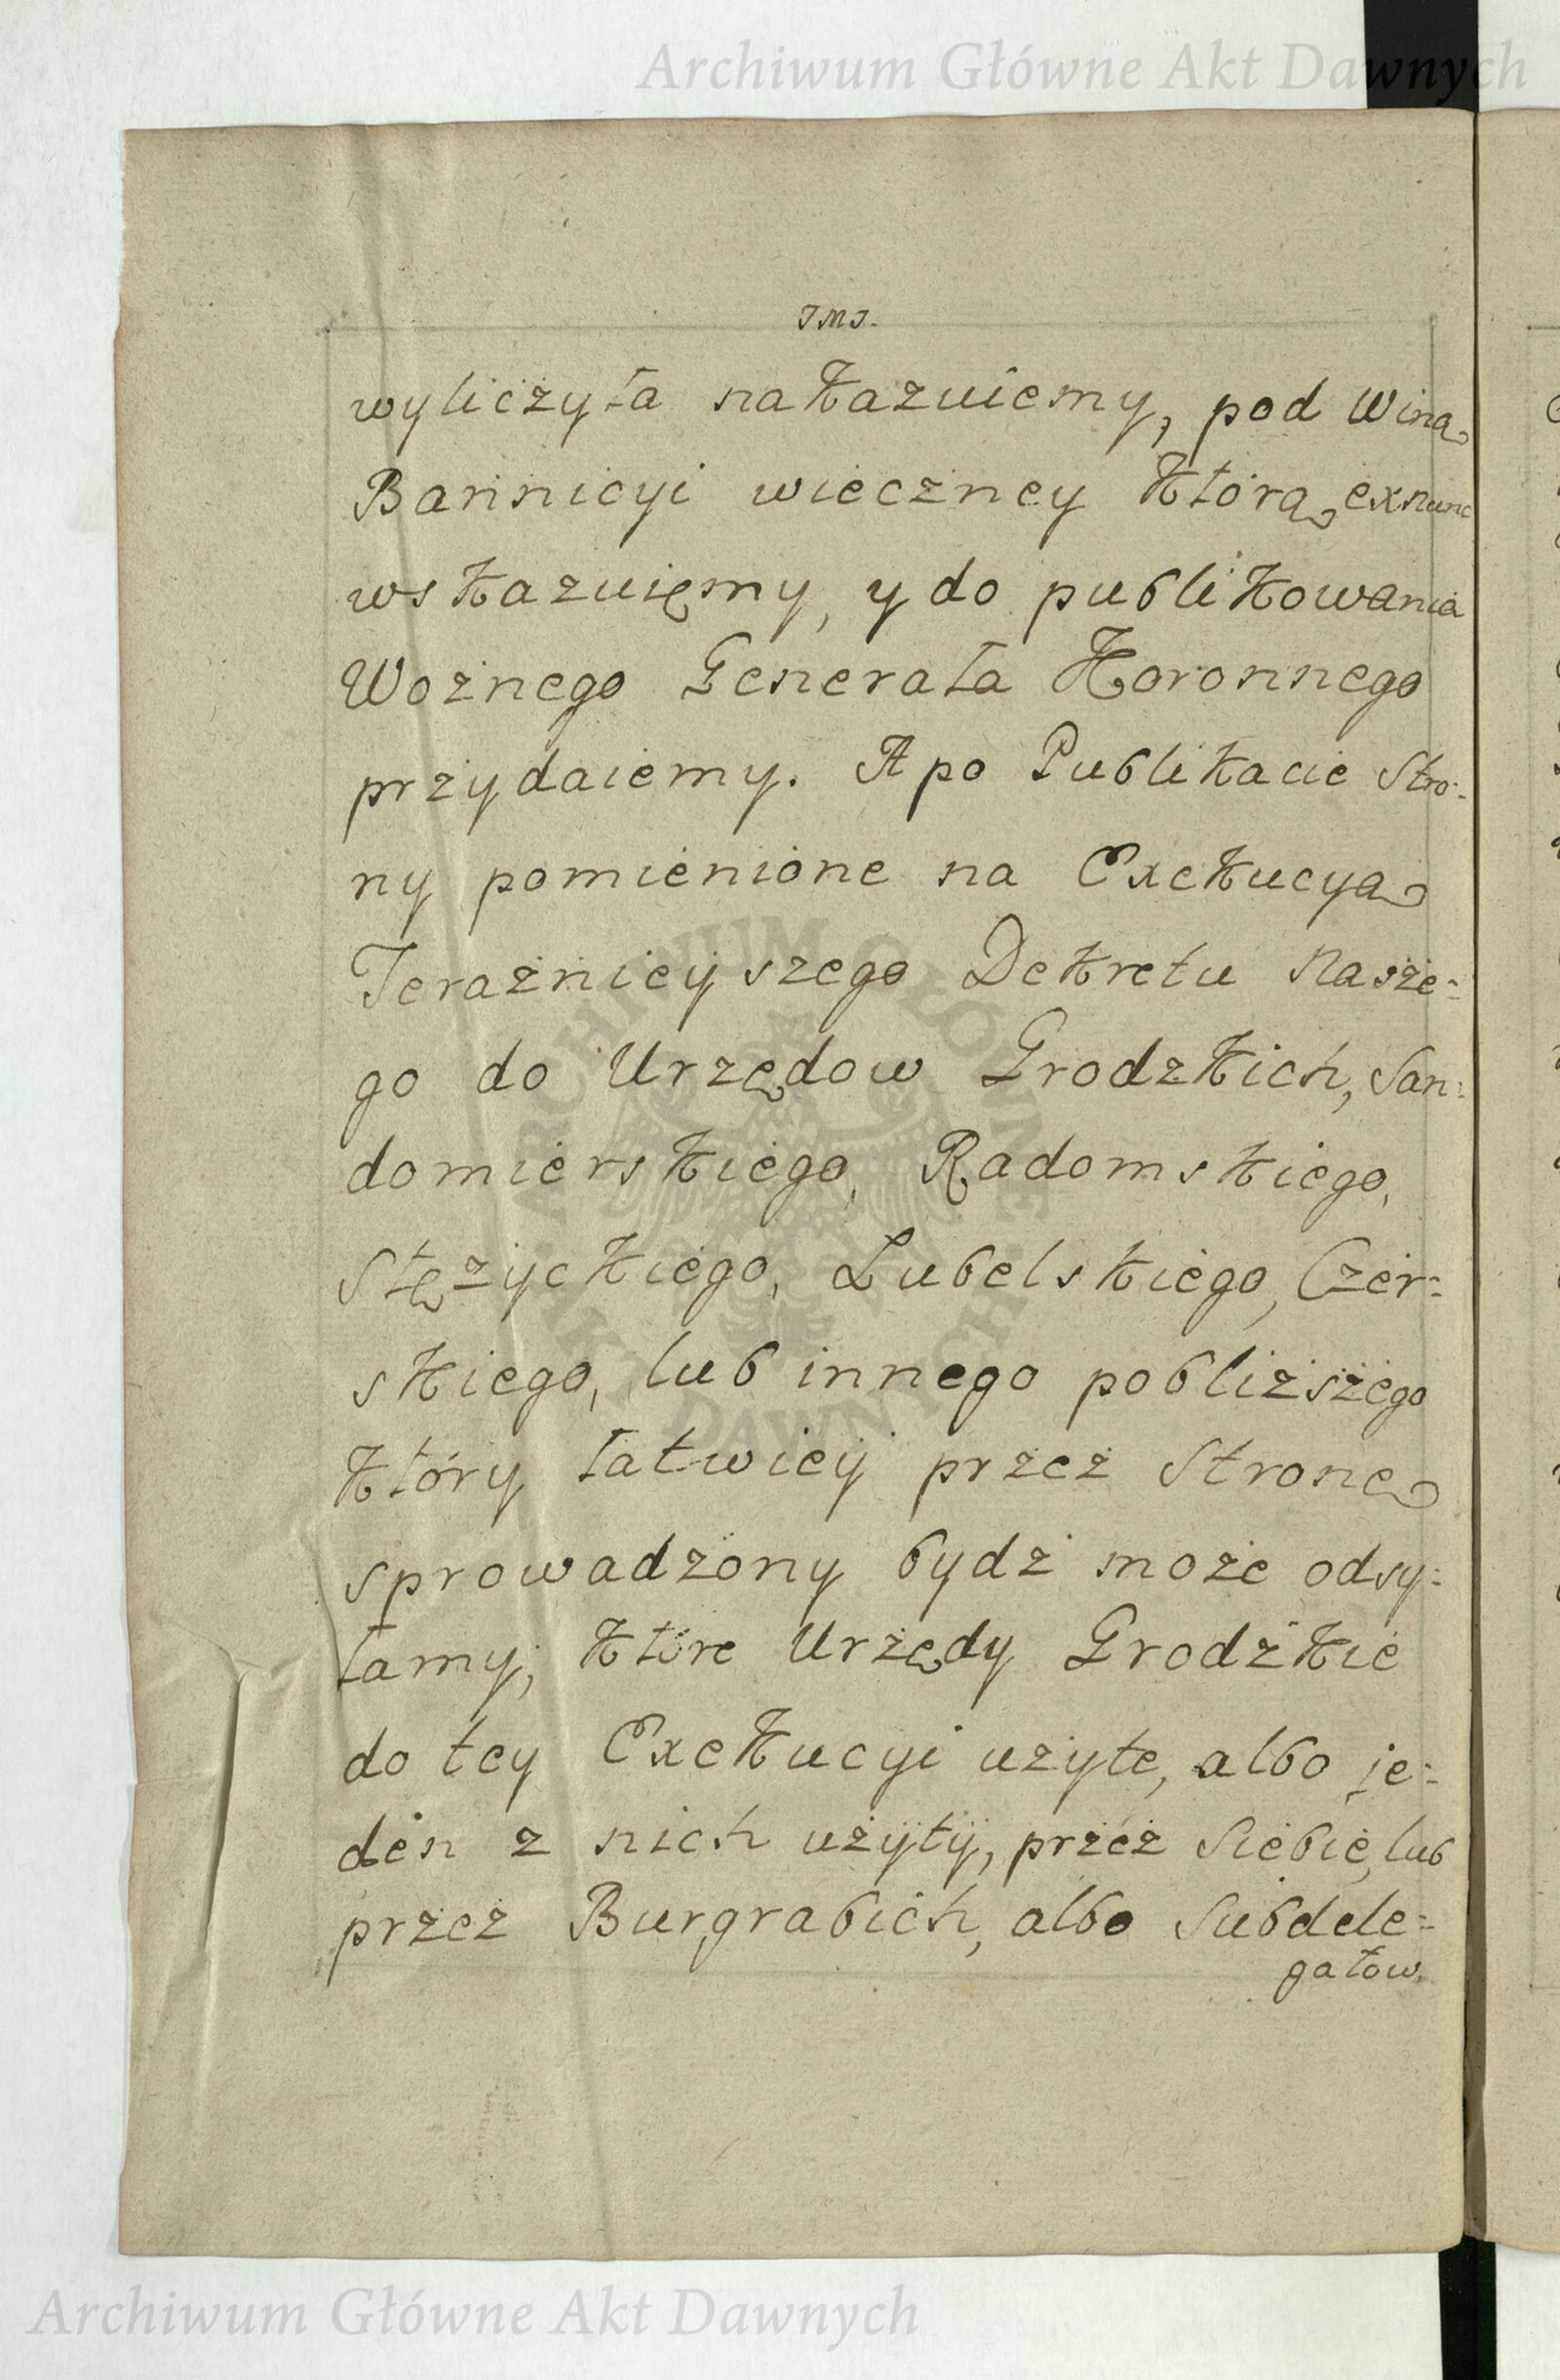 Archiwum Główne Akt Dawnych
JMJ.
wyliczyła nakazuiemy, pod Winą
Bannicyi wieczney którą exnunc
wskazuięmy, y do publikowania
Woznego Generała Koronnego
przydaiemy. A po Publikacie Stro:
ny pomienione na Exekucyą
Teraźnieyszego Dekretu Nasze:
go do Urzędow Grodzkich, San:
domierskiego, Radomskiego,
Stężyckiego, Lubelskiego, Czer:
skiego, lub innego pobliższego
który łatwiey przez Stronę
sprowadzony bydź może odsy:
łamy; które Urzędy Grodzkie
do tey Exekucyi użyte, albo je:
den z nich użyty, przez Siebie, lub
przez Burgrabich, albo Subdele:
gatow
ARCHIWUM GŁÓWNE AKT DAWNYCH
Archiwum Główne Akt Dawnych